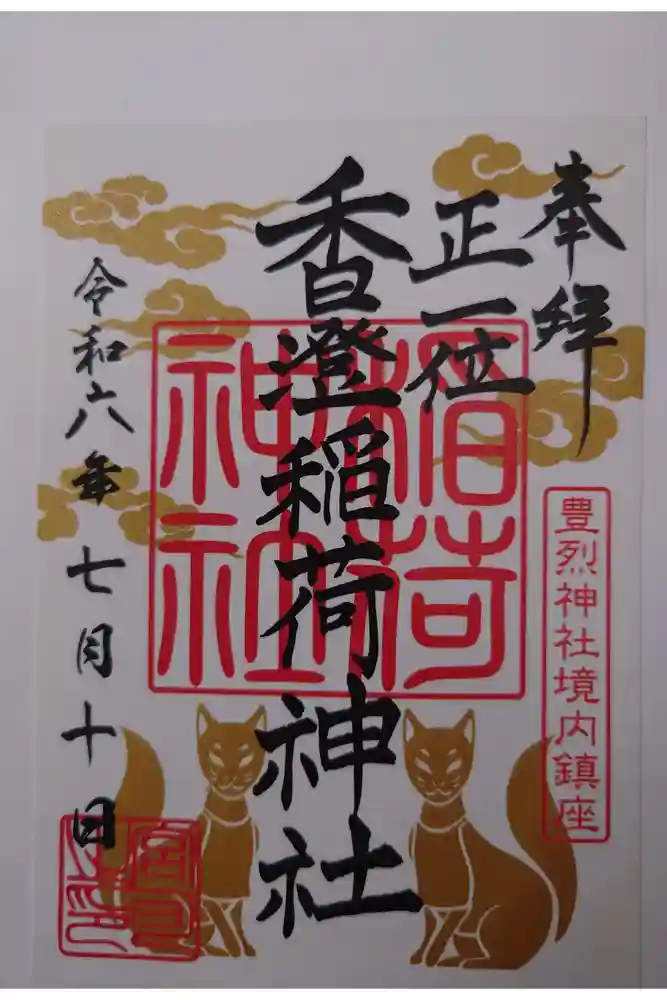 奉拝
豊烈神社境内鎮座
正一位
香澄稲荷神社
稲荷
神社
令和六年七月十日